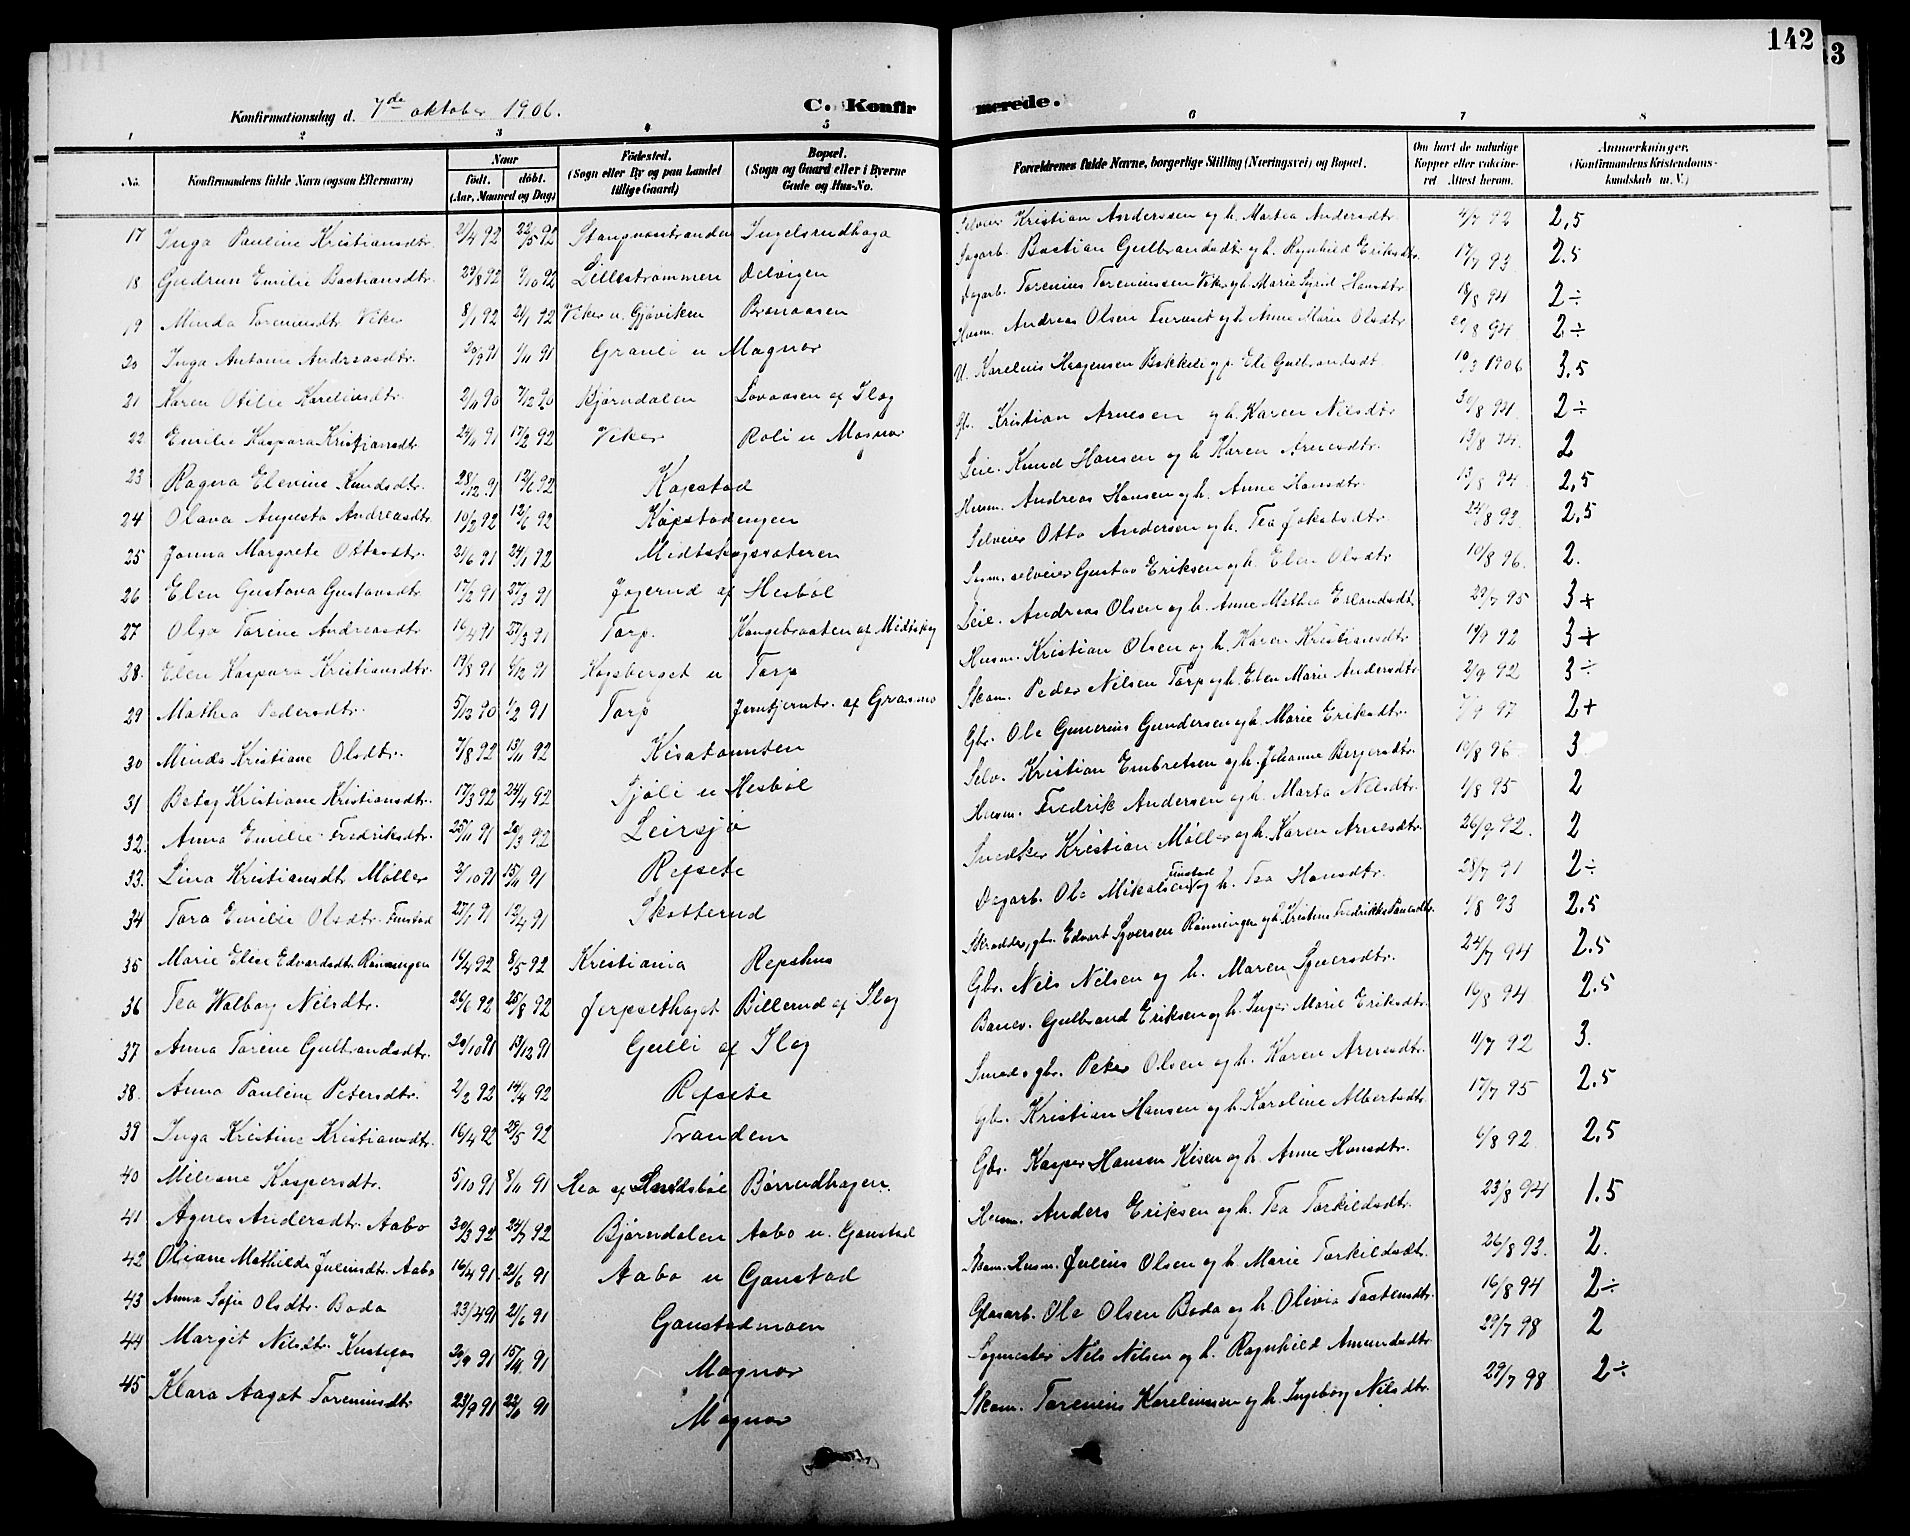 142
3
Konfirmationsdag d. 7de oktober 1906.
C. Konfirmerede.
1 2 3 4 5 6 7 8
No. | Konfirmandens fulde Navn (ogsaa Efternavn) | Naar født. døbt. (Aar, Maaned og Dag) | Fødested. (Sogn eller By og paa Landet tillige Gaard) | Bopæl. (Sogn og Gaard eller i Byerne Gade og Hus-No. | Forældrenes fulde Navne, borgerlige Stilling (Næringsvei) og Bopæl. | Om havt de naturlige Kopper eller vaccineret Attest herom. | Anmerkninger. (Konfirmandens Kristendomskundskab m. V.)
17 Inga Pauline Kristiansdtr. 2/4 92 22/5 92 Stangnæsstranden Ingelsrudhaga Selveier Kristian Anderssen og h. Martea Andersdtr 4/7 92 2,5
18 Gudrun Emilie Bastiansdtr. 29/8 92 9/10 92 Lillestrømmen Delvigen Sagarb. Bastian Gulbrandsdtr og h. Ragnhild Eriksdtr. 17/7 93 2.5
19 Minda Toreniusdtr Viker 8/1 92 24/1 92 Viker u. Gjøviken Brænaasen Dagarb. Torenius Toreniussen Viker og h. Marie Sigrid Hansdtr 18/8 94 2÷
20 Inga Antonie Andreasdtr. 20/9 91 1/11 91 Granli u Magnor Husm. Andreas Olsen Furuset og h. Anne Marie Olsdtr 20/8 94 2÷
21 Karen Otilie Kareliusdtr. 2/11 90 7/12 90 Bjørndalen Lovaasen af Ilag U. Karelius Haagensen Bakkeli og p. Eli Gulbrandsdt. 10/3 1906 3,5
22 Emilie Kaspara Kristiansdtr 24/11 91 17/2 92 Viker Roli u Magnor Gb. Kristian Arnesen og h. Karen Nilsdtr 30/8 94. 2÷
23 Ragna Elevine Knudsdtr. 28/12 91 12/6 92 Kapstad Leie. Knud Hansen og h. Karen Arnesdtr. 13/8 94. 2
24 Olava Augusta Andreasdtr. 10/2 92 12/6 92 Kapstadengen Husm. Andreas Hansen og h. Anne Hansdtr. 13/8 94 2,5
25 Janna Margrete Ottosdtr. 21/6 91 24/1 92 Midtskogsæteren Selveier Otto Andersen og h. Tea Jakobsdtr. 24/8 93. 2,5
26 Elen Gustava Gustavsdtr 17/2 91 27/3 91 Jogerud af Hesbøl Sagm. selveier Gustav Eriksen og h. Elen Olsdtr 10/8 96. 2.
27 Olga Torine Andreasdtr 16/4 91 27/3 91 Torp. Kangebraaten af Midtskog Leie. Andreas Olsen og h. Anne Mathea Erlandsdtr. 29/7 95 3+
28. Elen Kaspara Kristiansdtr. 19/8 91 6/12 91 Høgsberget u Torp Husm. Kristian Olsen og h. Karen Kristiansdtr. 19/9 92 3+
29 Mathea Pedersdtr. 5/12 90 1/2 91 Torp Jernbjernbr. af Grasmo Skom. Peder Nilsen Torp og h. Elen Marie Andersdtr. 2/9 92 3÷
30 Minda Kristiane Olsdtr. 7/8 92 13/11 92 Kisatomten Gbr. Ole Gunerius Gundersen og h. Marie Eriksdtr. 7/9 97 2+
31 Betsy Kristiane Kristiansdtr. 17/3 92 24/4 92 Sjøli u Hesbøl Selv. Kristian Embretsen og h. Johanne Bergersdtr. 10/8 96 3.
32. Anna Emilie Fredriksdtr. 25/11 91 20/3 92 Leirsjø Husm. Fredrik Andersen og h. Marta Nilsdtr. 1/8 95 2
33. Lina Kristiansdtr Møller 3/10 91 15/11 91 Refsete Snedker Kristian Møller og h. Karen Arnesdtr. 26/9 92. 2
34 Tora Emilie Olsdtr. Finstad 27/1 91 12/4 91 Skotterud Dagarb. Ole Mikalsen Finstad og h. Tea Hansdtr. 28/7 91 2÷
35 Marie Elise Edvardsdt. Rønningen 16/4 92 8/5 92 Kristiania Repshus Skrædder, gb. Edvart Syversen Rønningen og h. Kristine Fredrikke Paulsdtr. 1/8 93 2.5
36 Tea Walborg Nilsdtr. 26/6 92 25/8 92 Jerpsethaget Billerud af Ilag Gbr. Nils Nilsen og h. Maren Syversdtr. 24/7 94 2.5
37 Anna Torine Gulbrandsdtr. 20/10 91 13/12 91 Gulli af Ilag Banev. Gulbrand Eriksen og h. Inger Marie Eriksdtr. 16/8 94 2.5
38. Anna Pauline Petersdtr. 2/2 92 14/4 92 Refsete Smed og gbr. Peter Olsen og h. Karen Arnesdtr. 11/7 92 3.
39 Inga Kristine Kristiansdtr. 16/4 92 29/5 92 Trandem Gbr. Kristian Hansen og h. Karoline Albertsdtr 17/7 95 2.5
40 Miliane Kaspersdtr. 5/10 91 8/11 91 Hea af Lundsbøl Børrudhagen. Gbr. Kasper Hansen Kisen og h. Anne Hansdtr. 6/8 92. 2,5
41 Agnes Andersdtr. Aabo 30/3 92 24/7 92 Bjørndalen Aabo u. Gaustad Husm. Anders Eriksen og h. Tea Torkildsdtr. 23/8 94 1.5
42 Oliane Mathilde Juliusdtr. Aabo 16/4 91. 21/6 91 Aabo u Gaustad Skom. Husm. Julius Olsen og h. Marie Torkildsdtr. 26/8 93. 2.
43 Anna Sofie Olsdtr. Boda 23/4 91 21/6 91 Gaustadmoen Glasarb. Ole Olsen Boda og h. Olivia Tostensdtr. 16/8 94 2÷
44 Margit Nilsdtr. Kustefos 20/9 91 15/11 91 Magnor Sagmester Nils Nilsen og h. Ragnhild Amundsdtr 29/7 98 2
45 Klara Aagot Toreniusdtr 23/9 91 22/11 91 Magnor Skom. Torenius Kareliussen og h. Ingeborg Nilsdtr. 29/7 98 2÷